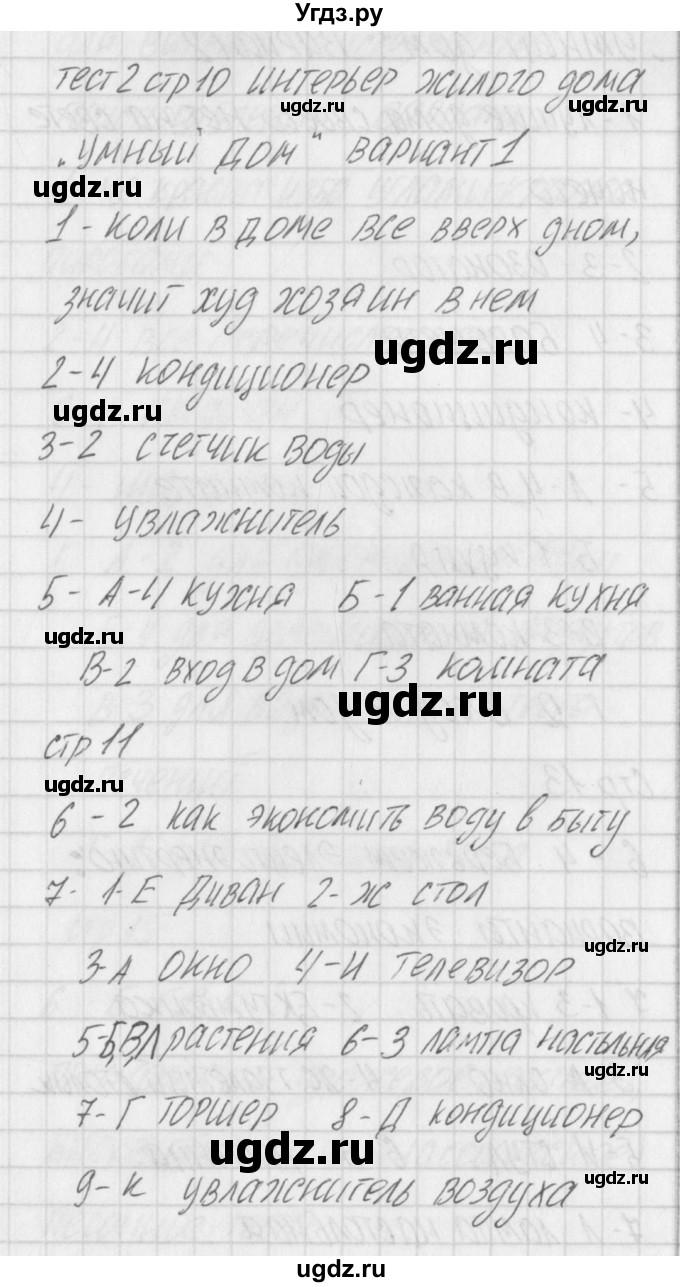 Угдз.ру
тест 2 стр 10 интерьер жилого дома
ugdz.ru ugdz.ru
„умный дом" вариант 1
ugdz.ru
1 - коли в доме все вверх дном,
значит худ хозяин в нем
ugdz.ru
2-4 кондиционер
ugdz.ru
3-2 счетчик воды
4 - увлажнитель
5 - А-4 кухня Б-1 ванная кухня
ugdz.ru
В-2 вход в дом Г-3 комната
ugdz.ru
стр 11
ugdz.ru
6 - 2 как экономить воду в быту
7 - 1-Е Диван 2-ж стол
ugdz.ru
3-А окно 4-И телевизор
5-Б,В,Л растения 6-З лампа настольния
ugdz.ru
7-Г торшер 8-Д кондиционер
ugdz.ru
9-к увлажнитель воздуха
ugdz.ru
ugdz.ru